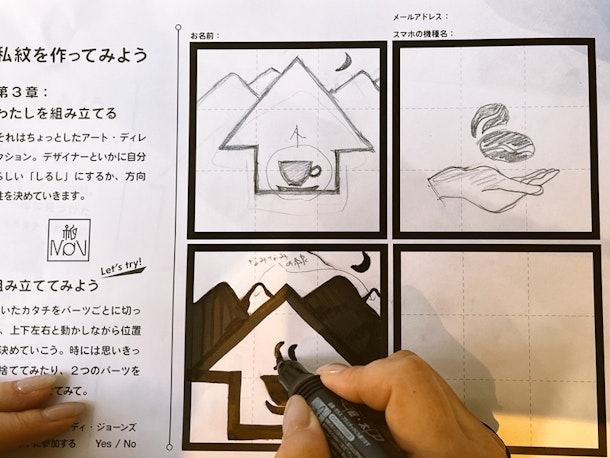 メールアドレス：
お名前：
スマホの機種名：
私紋を作ってみよう
第3章：
わたしを組み立てる
それはちょっとしたアート・ディレ
クション。デザイナーといかに自分
らしい「しるし」にするか、方向
性を決めていきます。
Let's try!
組み立ててみよう
いたカタチをパーツごとに切っ
、上下左右と動かしながら位置
決めていこう。時には思いきっ
捨ててみたり、2つのパーツを
てみて。
ディ・ジョーンズ
参加する Yes / No